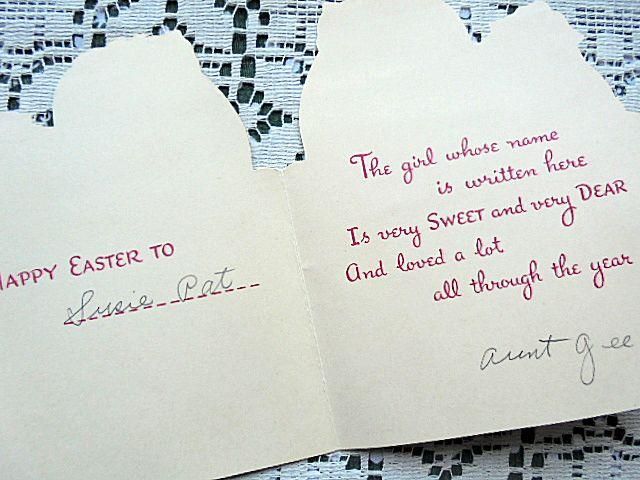 HAPPY EASTER TO
Susie Pat
The girl whose name
is written here
Is very SWEET and very DEAR
And loved a lot
all through the year
aunt Gee